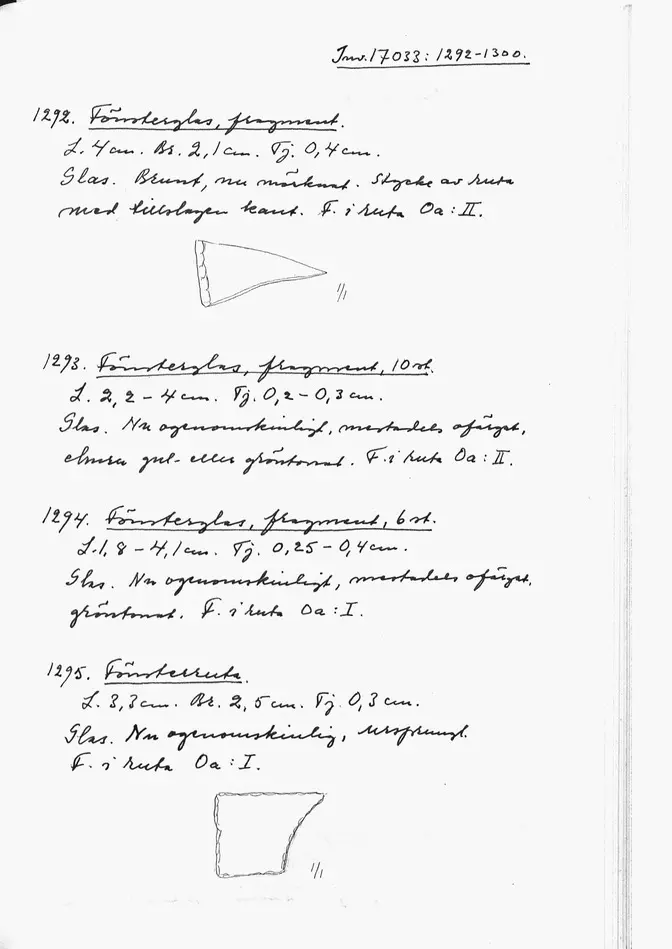 Inv. 17033: 1292-1300.
1292. Fönsterglas, fragment.
L. 4 cm. Br. 2,1 cm. Tj. 0,4 cm.
Glas. Brunt, nu mörknat. Stycke av ruta
med tillslagen kant. F. i ruta Oa: II.
1/1
1293. Fönsterglas, fragment, 10 st.
L. 2,2 - 4 cm. Tj. 0,2 - 0,3 cm.
Glas. Nu ogenomskinligt, mestadels ofärgat,
gul- eller gröntonat. F. i ruta Oa: II.
1294. Fönsterglas, fragment, 6 st.
L. 1,8 - 4,1 cm. Tj. 0,25 - 0,4 cm.
Glas. Nu ogenomskinligt, mestadels ofärgat,
gröntonat. F. i ruta Oa: I.
1295. Fönsterruta.
L. 3,3 cm. Br. 2,5 cm. Tj. 0,3 cm.
Glas. Nu ogenomskinlig, ursprungl.
F. i ruta Oa: I.
1/1